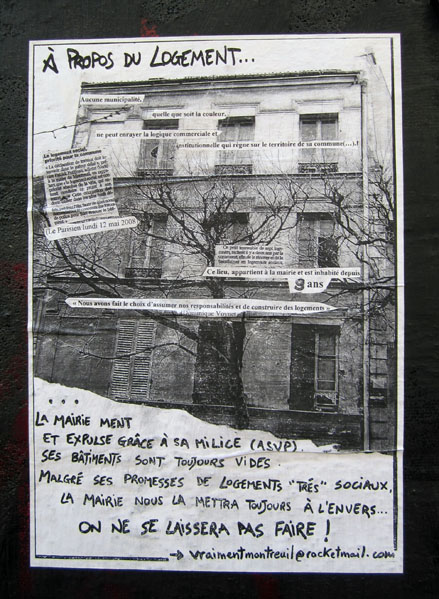 À PROPOS DU LOGEMENT...
Aucune municipalité,
quelle que soit la couleur,
ne peut enrayer la logique commerciale et
institutionnelle qui règne sur le territoire de sa commune(...).!
(Le Parisien lundi 12 mai 2008)
Ce lieu, appartient à la mairie et est inhabité depuis
9 ans
« Nous avons fait le choix d'assumer nos responsabilités et de construire des logements »
Dominique Voynet
...
LA MAIRIE MENT
ET EXPULSE GRÂCE À SA MILICE (ASVP).
SES BÂTIMENTS SONT TOUJOURS VIDES.
MALGRÉ SES PROMESSES DE LOGEMENTS "TRÉS" SOCIAUX,
LA MAIRIE NOUS LA METTRA TOUJOURS À L'ENVERS...
ON NE SE LAISSERA PAS FAIRE !
→ vraimentmontreuil@rocketmail.com